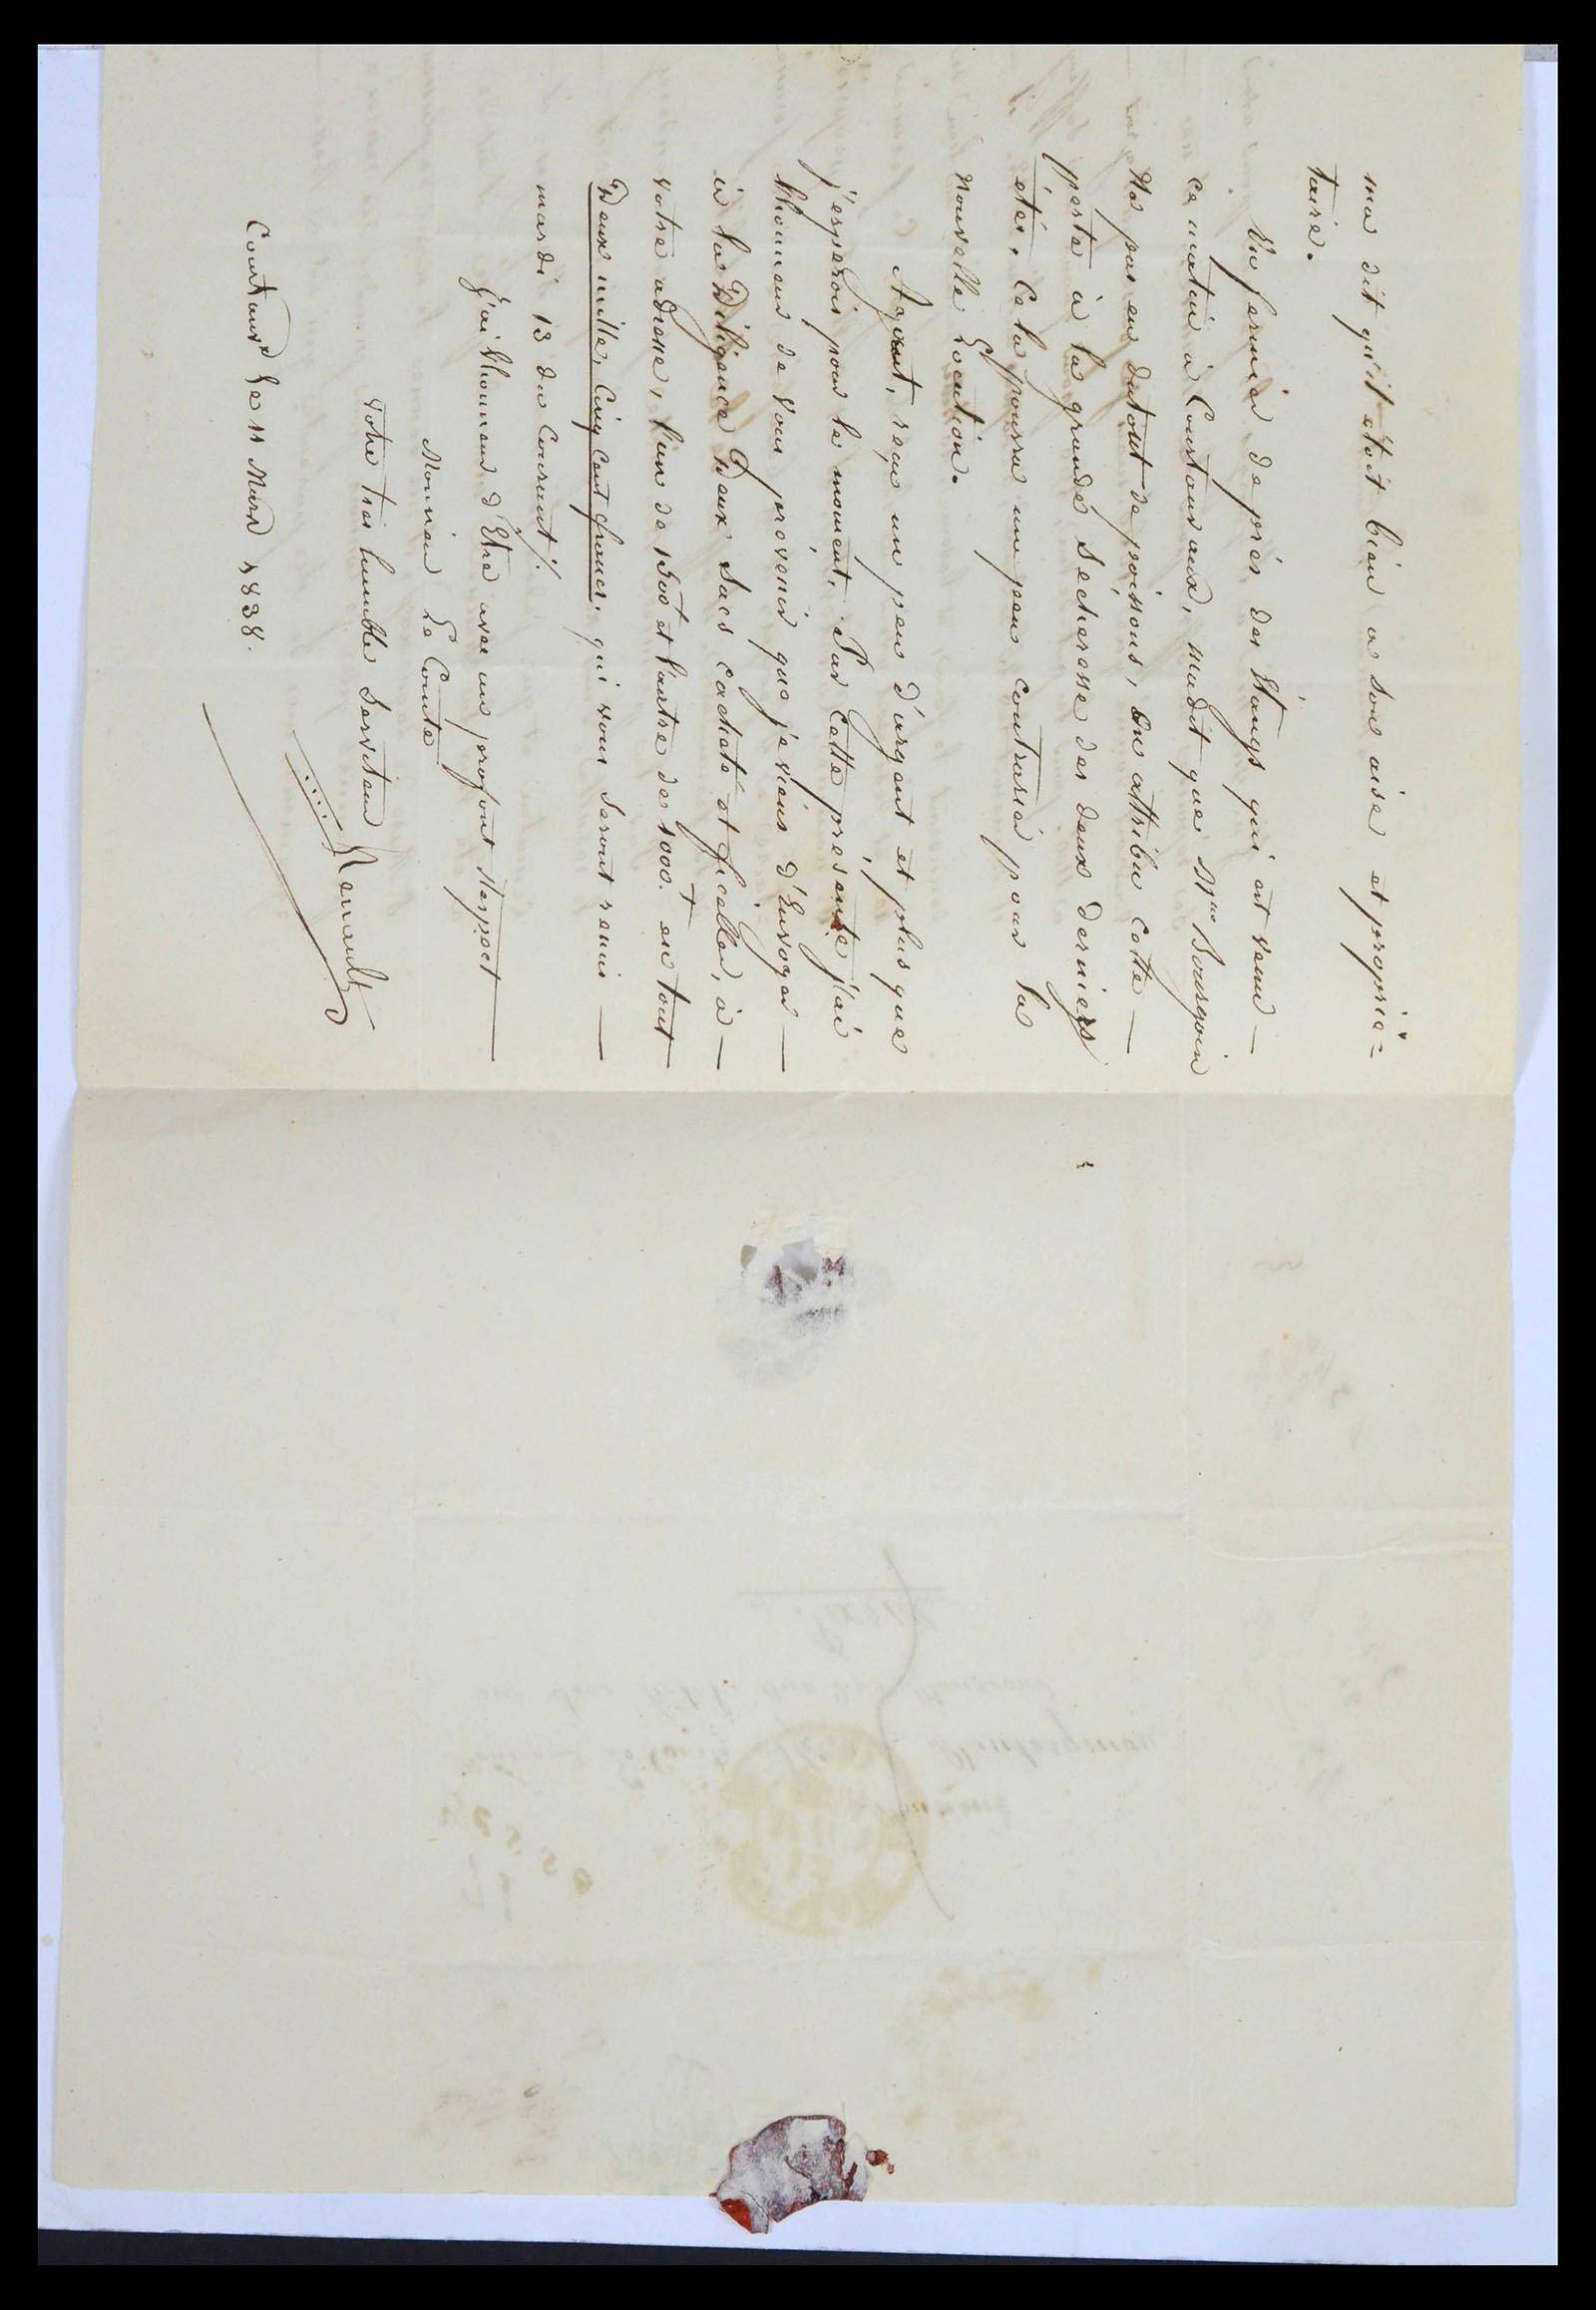 ma dit qu'il étoit bien a son aise et proprié=
taire.
Un fermier de près des Étangs qui est venu —
ce matin à Courtavaux, madit que Mme Bourgoin
Na pas eu dutout de poissons, on attribu cette —
perte à la grande Sécheresse des deux derniers
étés. Cela pourra un peu contrarier pour la
Nouvelle Location.
Ayant, reçu un peu d'argent et plus que
j'esperois pour le moment. Par Cette présente j'ai
l'honneur de vous prévenir que je viens d'Envoyer —
à la Diligence Deux Sacs cacheté et ficeller, à —
votre adresse, l'un de 1500f et l'autre de 1000.f en tout
Deux mille, Cinq Cent francs. qui vous seront remis —
mardi 13 du Courant ./.
J'ai l'honneur d'Etre avec un profont Respect —
Monsieur Le Comte
Votre très humble Serviteur
Renault
Courtavx Le 11 Mars 1838.